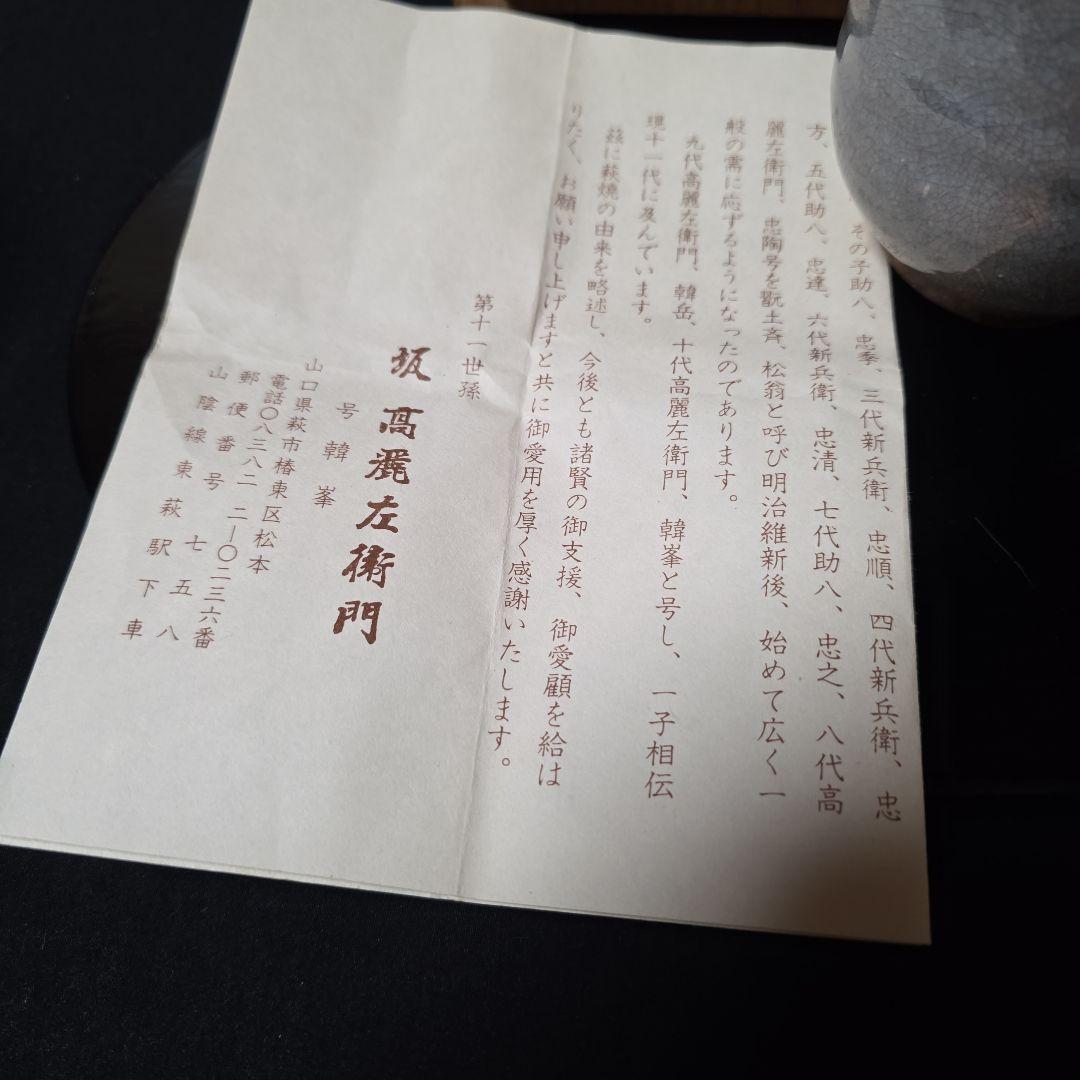 その子助八、忠季、三代新兵衛、忠順、四代新兵衛、忠
方、五代助八、忠達、六代新兵衛、忠清、七代助八、忠之、八代高
麗左衛門、忠陶号を翫土斉、松翁と呼び明治維新後、始めて広く一
般の需に応ずるようになったのであります。
九代高麗左衛門、韓岳、十代高麗左衛門、韓峯と号し、一子相伝
現十一代に及んでいます。
茲に萩焼の由来を略述し、今後とも諸賢の御支援、御愛顧を給は
りたく、お願い申し上げますと共に御愛用を厚く感謝いたします。
第十一世孫
坂高麗左衛門
号韓峯
山口県萩市椿東区松本
電話〇八三八二 二―〇二三六番
郵便番号 七五八
山陰線東萩駅下車